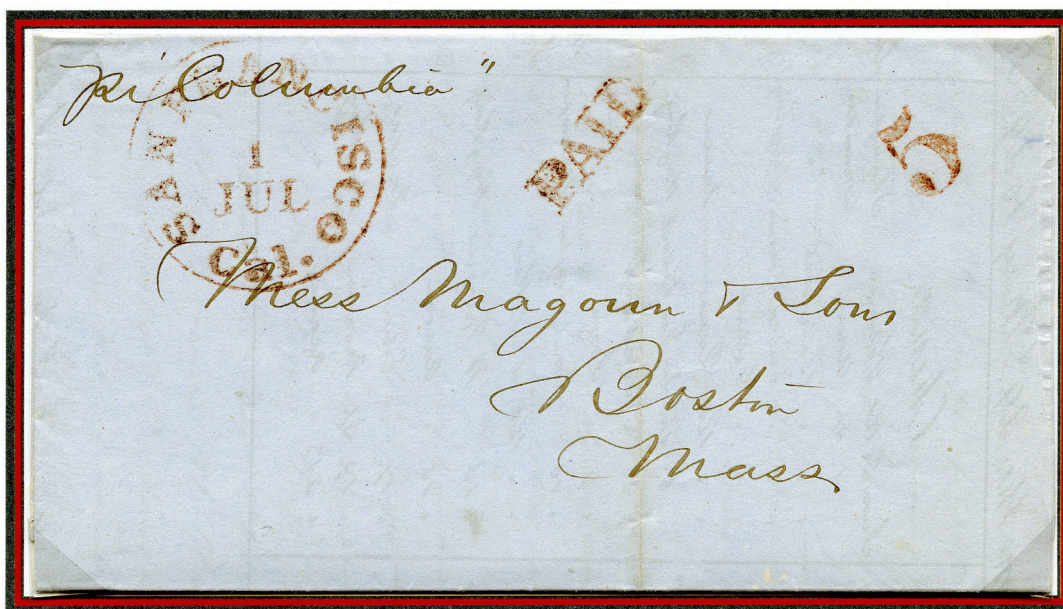 pr "Columbia".
SAN FRANCISCO
1
JUL
Cal.
PAID
5
Mess Magoun & Sons
Boston
Mass